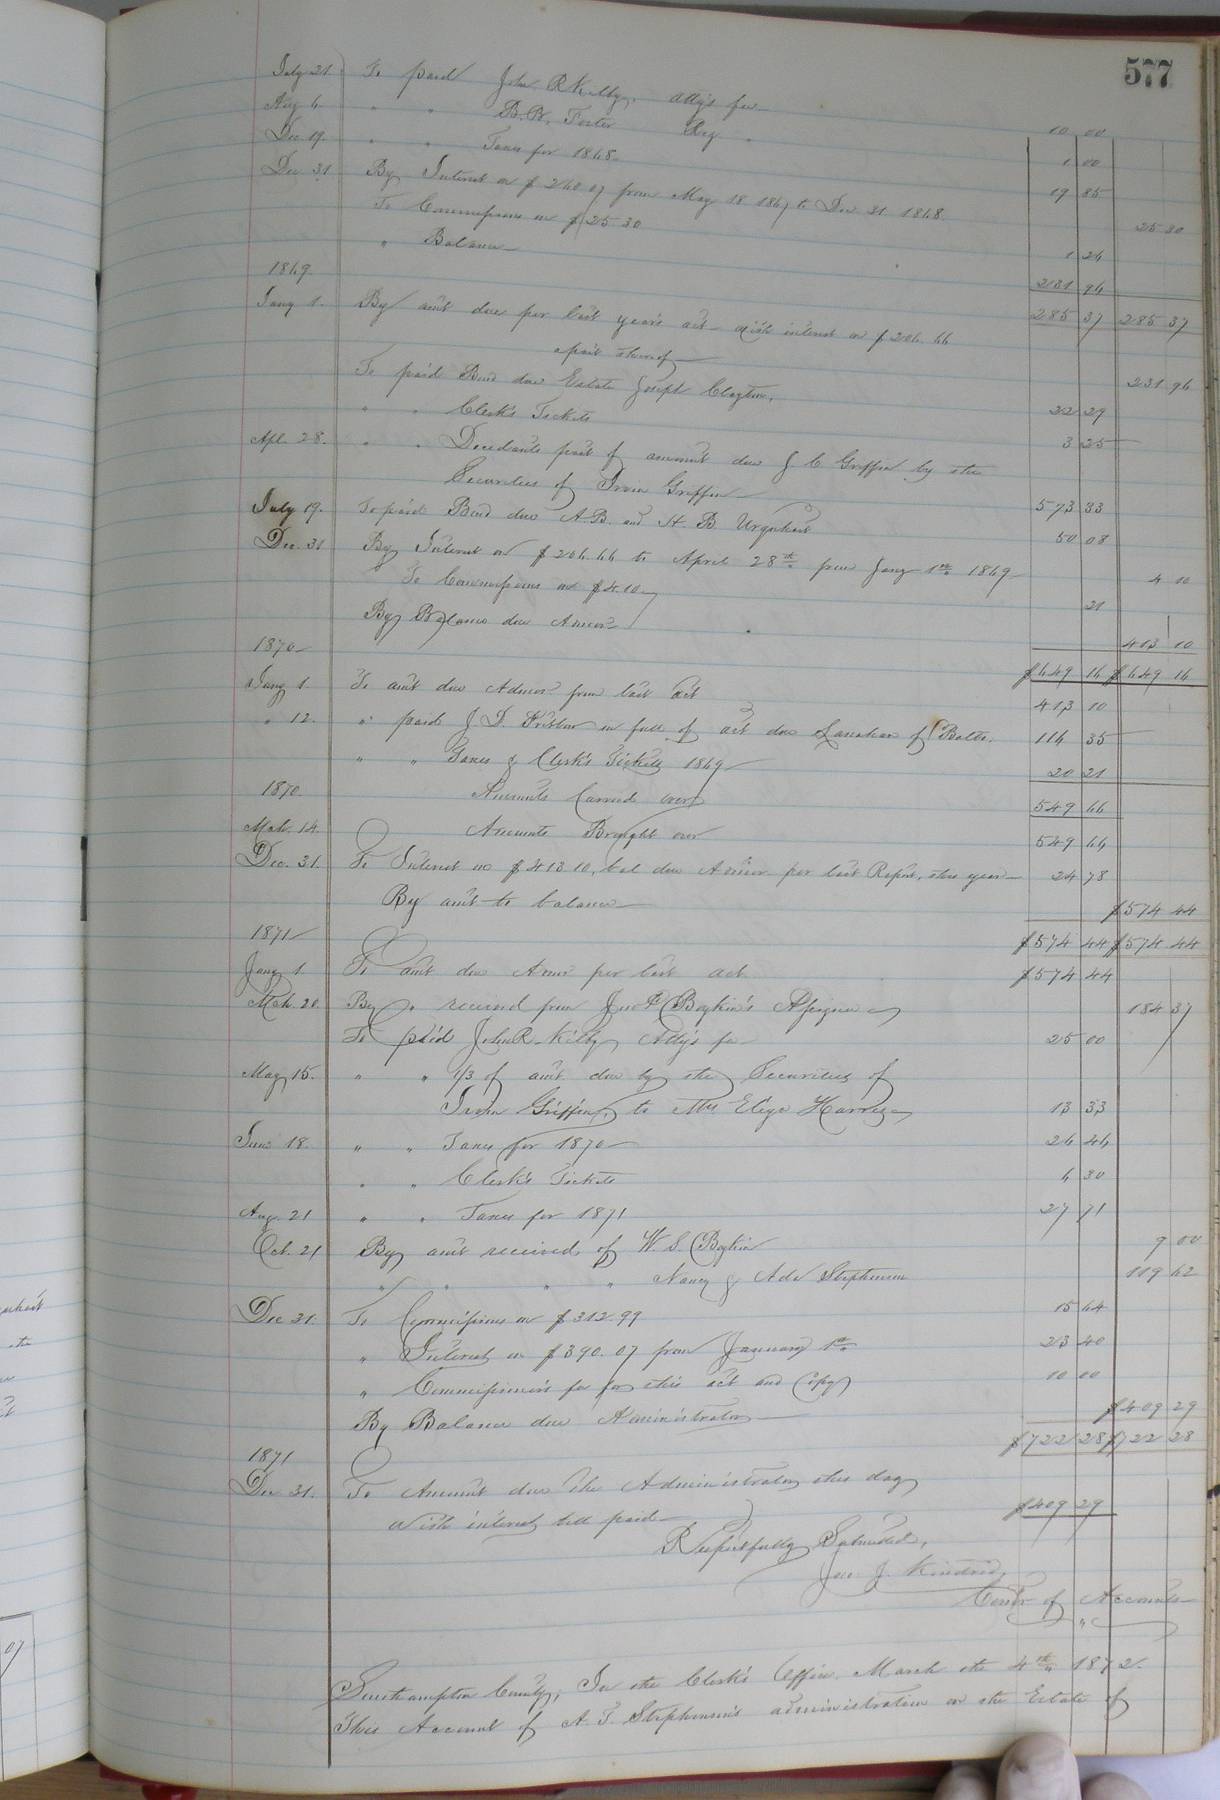 577
July 21 To paid John R Kilby, Atty's fee 10 00
Aug 6. " " B. W. Foster Reg " 1 00
Dec 19. " " Taxes for 1868. 19 85
Dec 31 By Interest on $ 260 07 from May 18 1867 to Dec 31 1868 25 30
To Commissions on $ 25 30 1 26
" Balance 231 96
285 37 285 37
1869.
Jany 1. By amt due per last years act with interest on $ 206.66
part thereof 231 96
To paid Bond due Estate Joseph Clayton, 22 29
" " Clerk's Tickets 3 25
Apl. 28. " " Decedants part of amount due J C Griffin by the
Securities of Irvin Griffin 573 33
July 19. To paid Bond due A. B. and H. B. Urquhart 50 08
Dec. 31 By Interest on $ 206.66 to April 28th from Jany 1st 1869 4 10
To Commissions on $4.10 21
By Balance due Admor 413 10
$649 16 $649 16
1870
Jany 1. To amt due Admor from last act 413 10
" 12. " paid J. D. in full of act due of Batte. 116 35
" " Taxes & Clerk's Tickets 1869 20 21
1870. Amounts Carried over 549 66
Mch. 14. Amounts Brought over 549 66
Dec. 31. To Interest on $ 413.10, bal due Admor per last Report, this year 24 78
By amt to balance $574 44
$574 44 $574 44
1871
Jany 1 To amt due Amor per last act $574 44
Mch. 20. By " received from Boykin's Assignee 184 37
To paid John R Kilby Atty's fee 25 00
May 15. " " 1/3 of amt due by the Securities of
Irvin Griffin, to Mrs Eliza Harris 13 33
June 18. " " Taxes for 1870 26 46
" " Clerk's Tickets 6 30
Aug. 21 " " Taxes for 1871 27 71
Oct. 21 By amt received of W. S. Boykin 9 00
" " " " Nancy & Ada Stephenson 119 62
Dec 31. To Commissions on $ 312.99 15 64
" Interest on $ 390.07 from January 1st 23 40
" Commissioner's fee for this act and Copy 10 00
By Balance due Administrator $409 29
$722 28 $722 28
1871
Dec 31. To Amount due the Administrator this day
with interest till paid $409 29
Respectfully Submitted,
J. Kindred,
Comr of Accounts
Southampton County; In the Clerk's Office March the 4th 1872.
This Account of A. T. Stephenson's administration on the Estate of
07